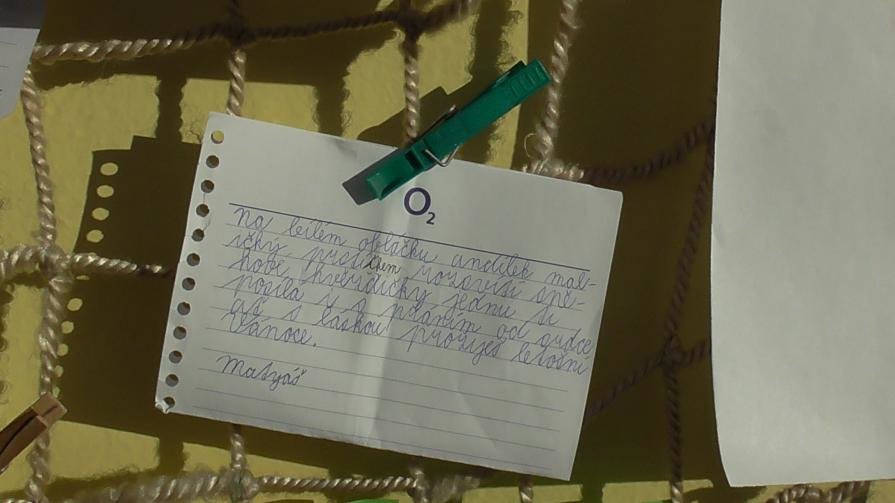 O2
Na bílém obláčku andílek mal-
ičký prstíčkem rozsvěcí sně-
hové hvězdičky jednu ti
posílá i s přáním od srdce
ať s láskou prožiješ letošní
Vánoce.
Matyáš